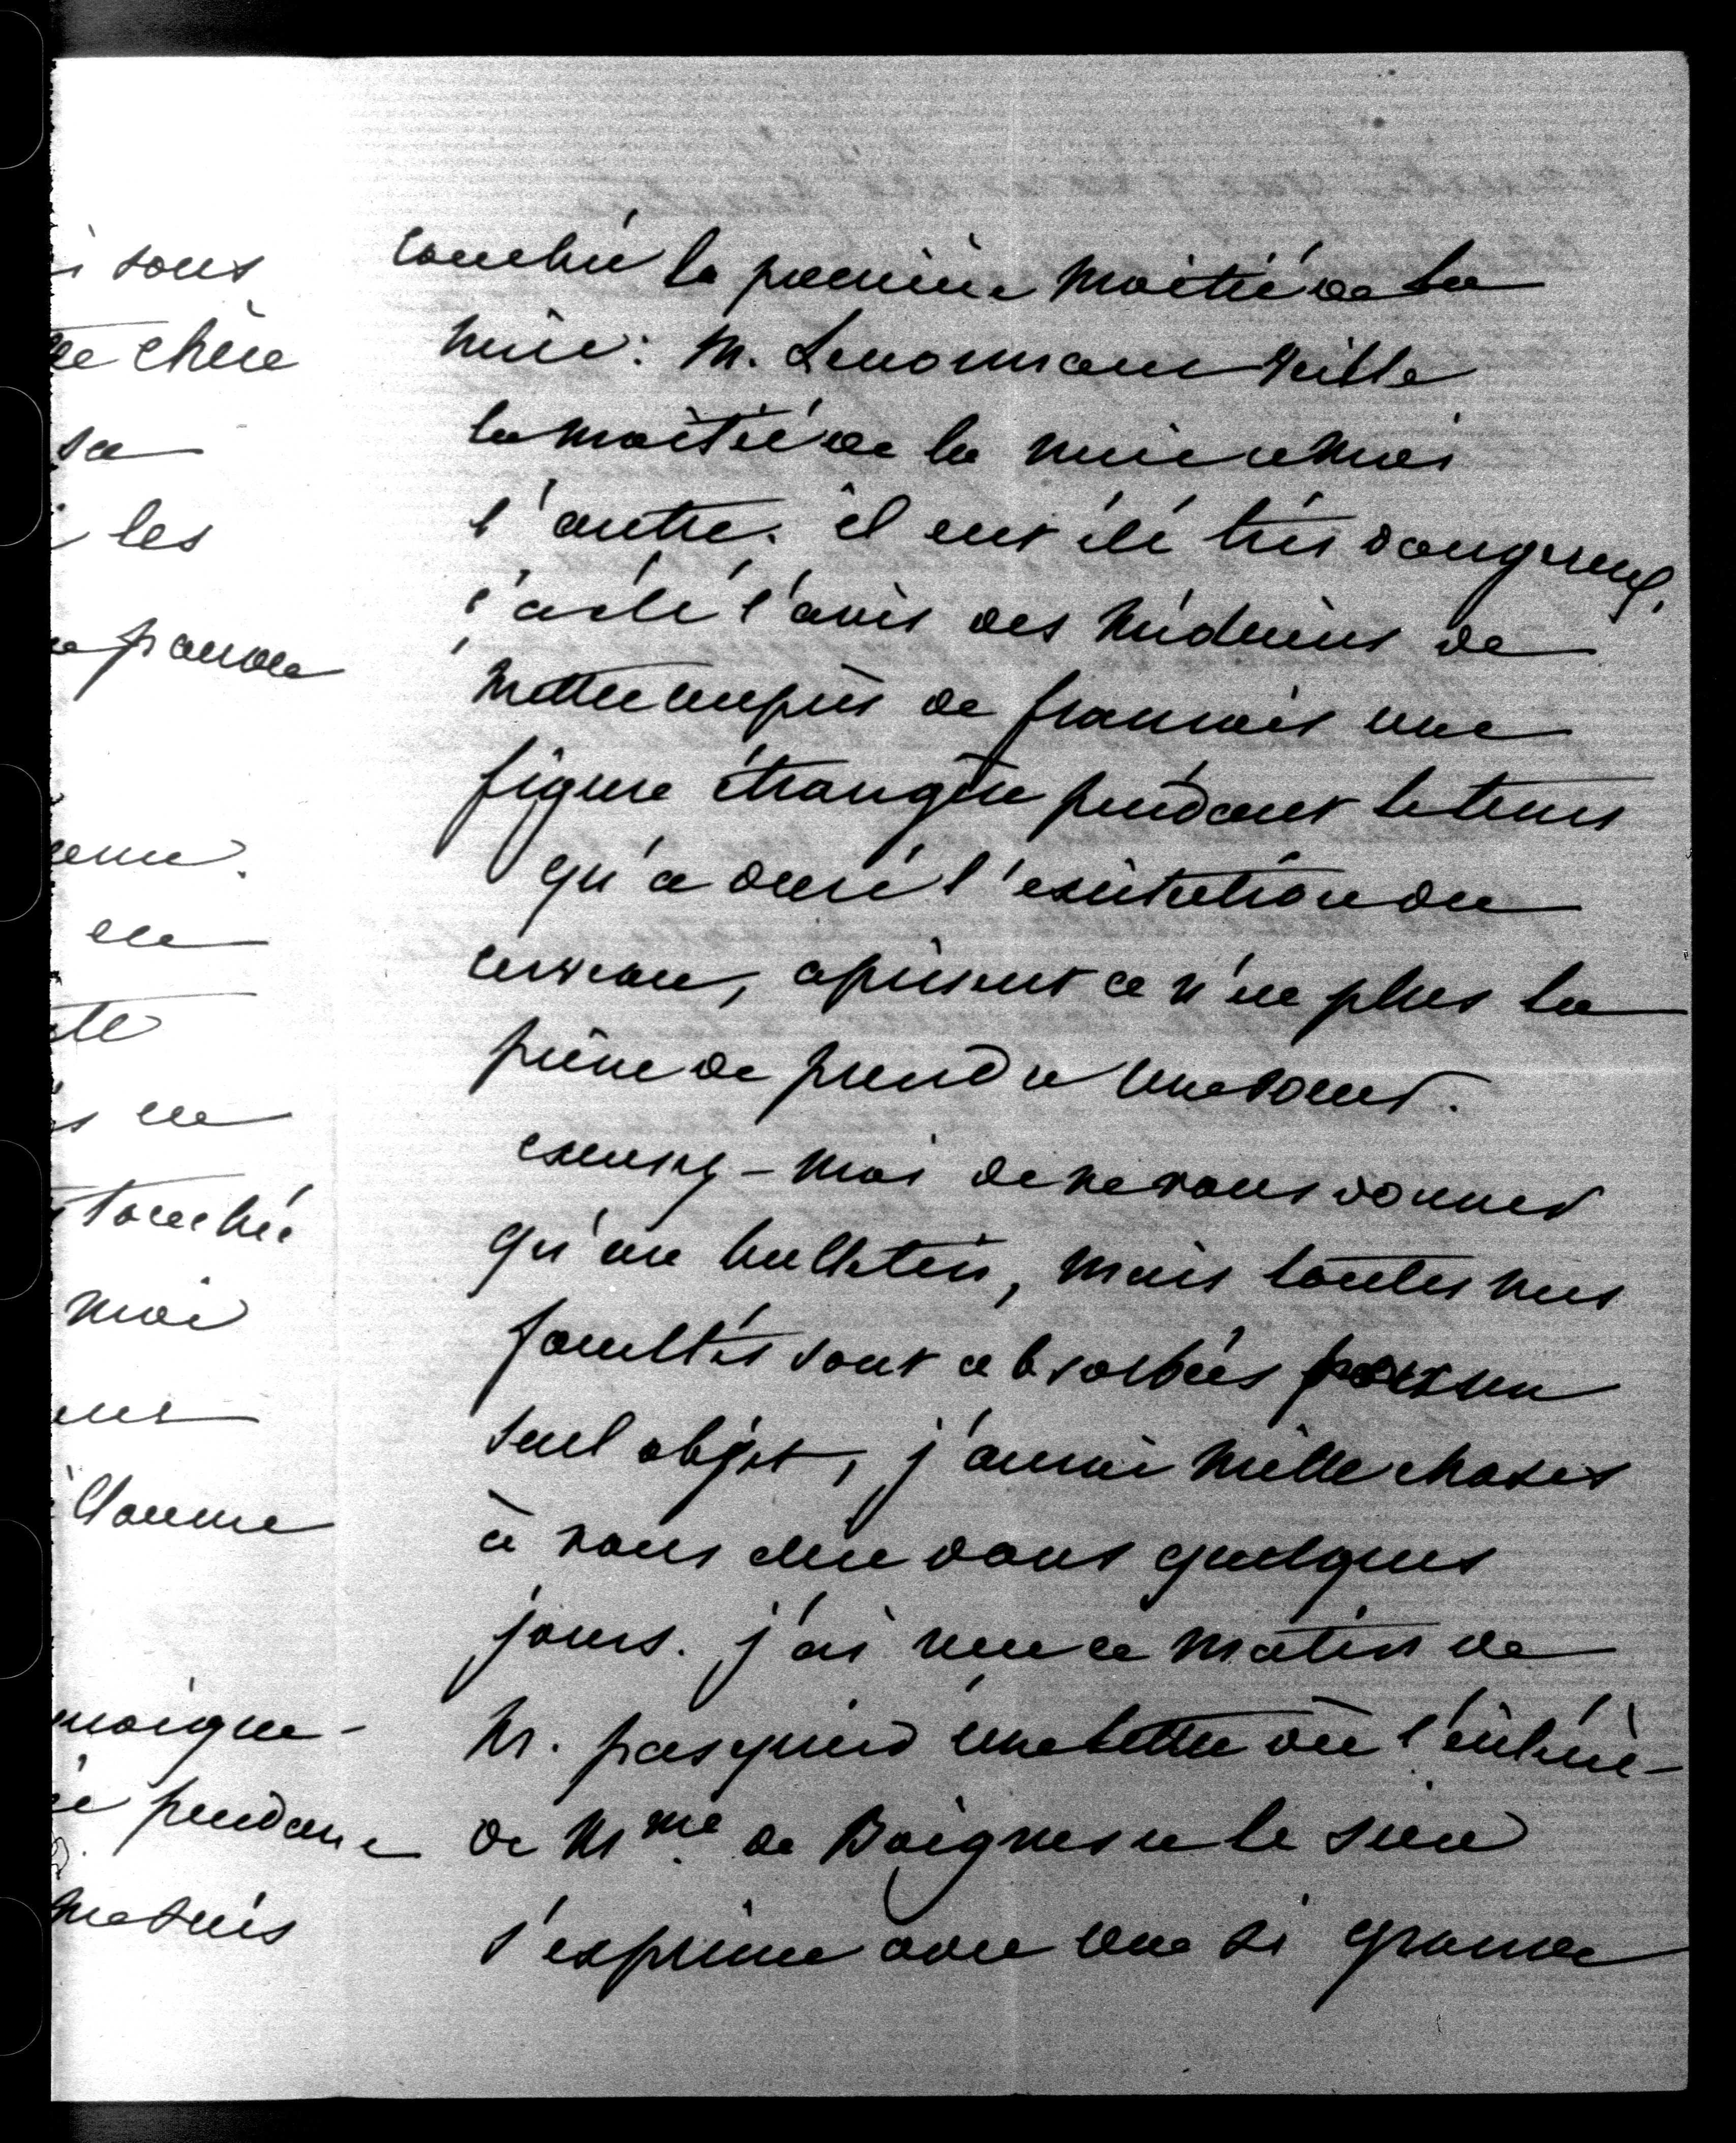 i sous
chère
sa
les
pauvre
en
s en
touchée
moi
Claume
moigne-
pendant
me suis
couchée la première moitié de la
nuit: M. Lenormant veille
la moitié de la nuit et moi
l'autre. il eut été très dangereux,
ç'a été l'avis des médecins de
mettre auprès de françois une
figure étrangère pendant le tems
qu'a duré l'excitation du
cerveau, à présent ce n'est plus la
peine de prendre une soeur.
excusez-moi de ne vous donner
qu'un bulletin, mais toutes mes
facultés sont absorbées par un
seul objet, j'aurai mille choses
à vous dire dans quelques
jours. j'ai reçu ce matin de
M. pasquier une lettre où l'intérêt
de Mme. de Boigne et le sien
s'exprime avec une si grande